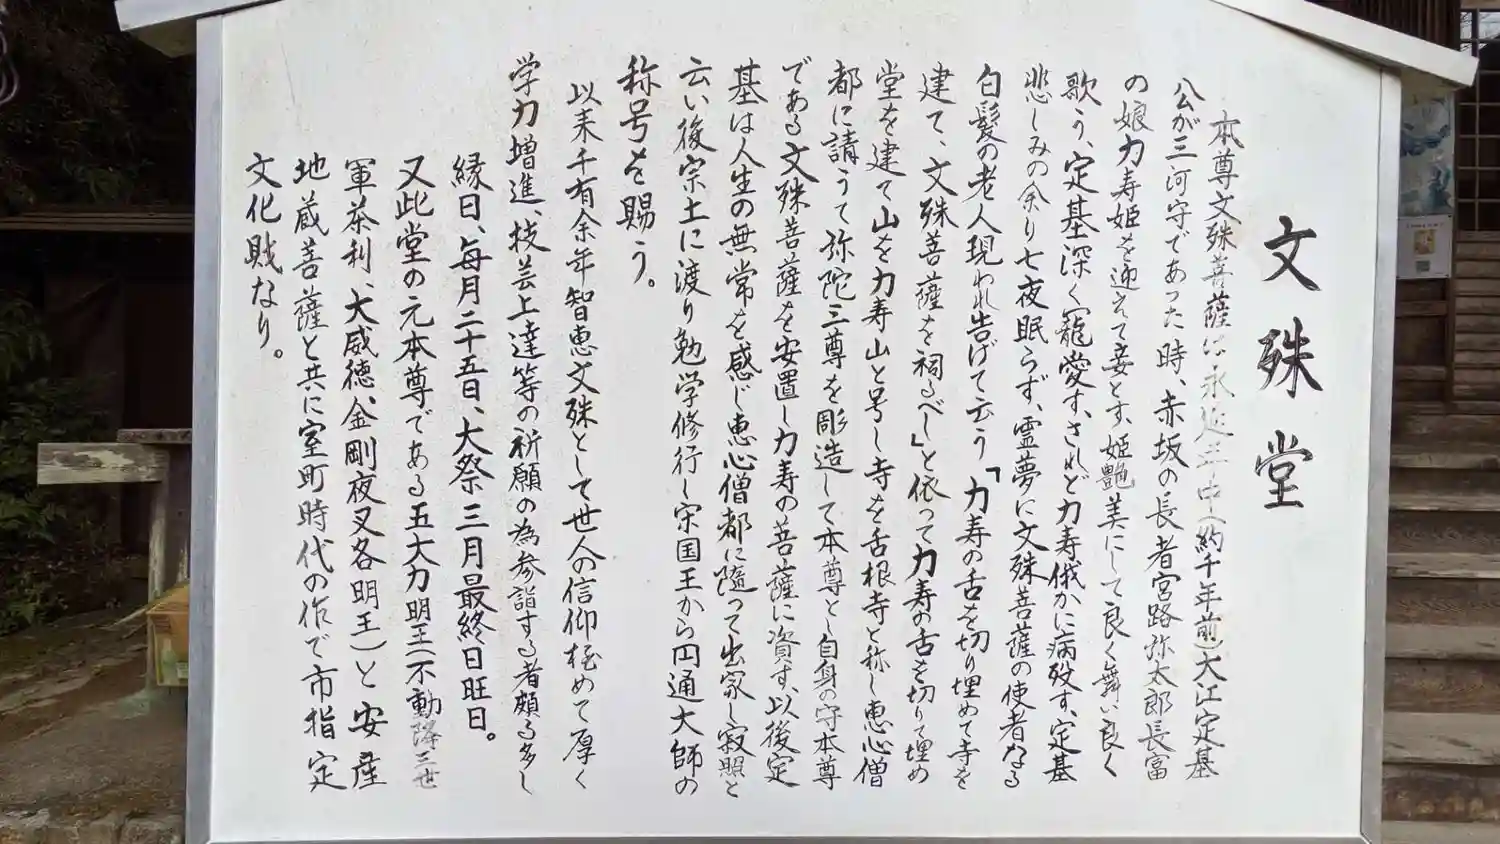 文殊堂
本尊文殊菩薩は永延年中(約千年前)大江定基
公が三河守であった時、赤坂の長者宮路弥太郎長富
の娘力寿姫を迎えて妾とす、姫艶美にして良く舞い良く
歌う、定基深く寵愛す、されど力寿俄かに病歿す、定基
悲しみの余り七夜眠らず、霊夢に文殊菩薩の使者なる
白髪の老人現われ告げて云う「力寿の舌を切り埋めて寺を
建て、文殊菩薩を祠るべし」と依って力寿の舌を切りて埋め
堂を建て山を力寿山と号し寺を舌根寺と称し恵心僧
都に請うて弥陀三尊を彫造して本尊とし自身の守本尊
である文殊菩薩を安置し力寿の菩薩に資す、以後定
基は人生の無常を感じ恵心僧都に隨って出家し寂照と
云い後宗土に渡り勉学修行し宋国王から円通大師の
称号を賜う。
以来千有余年智恵文殊として世人の信仰極めて厚く
学力増進、技芸上達等の祈願の為参詣する者頗る多し
縁日、毎月二十五日、大祭三月最終日旺日。
又此堂の元本尊である五大力明王(不動降三世
軍荼利、大威徳、金剛夜叉各明王)と安産
地蔵菩薩と共に室町時代の作で市指定
文化財なり。